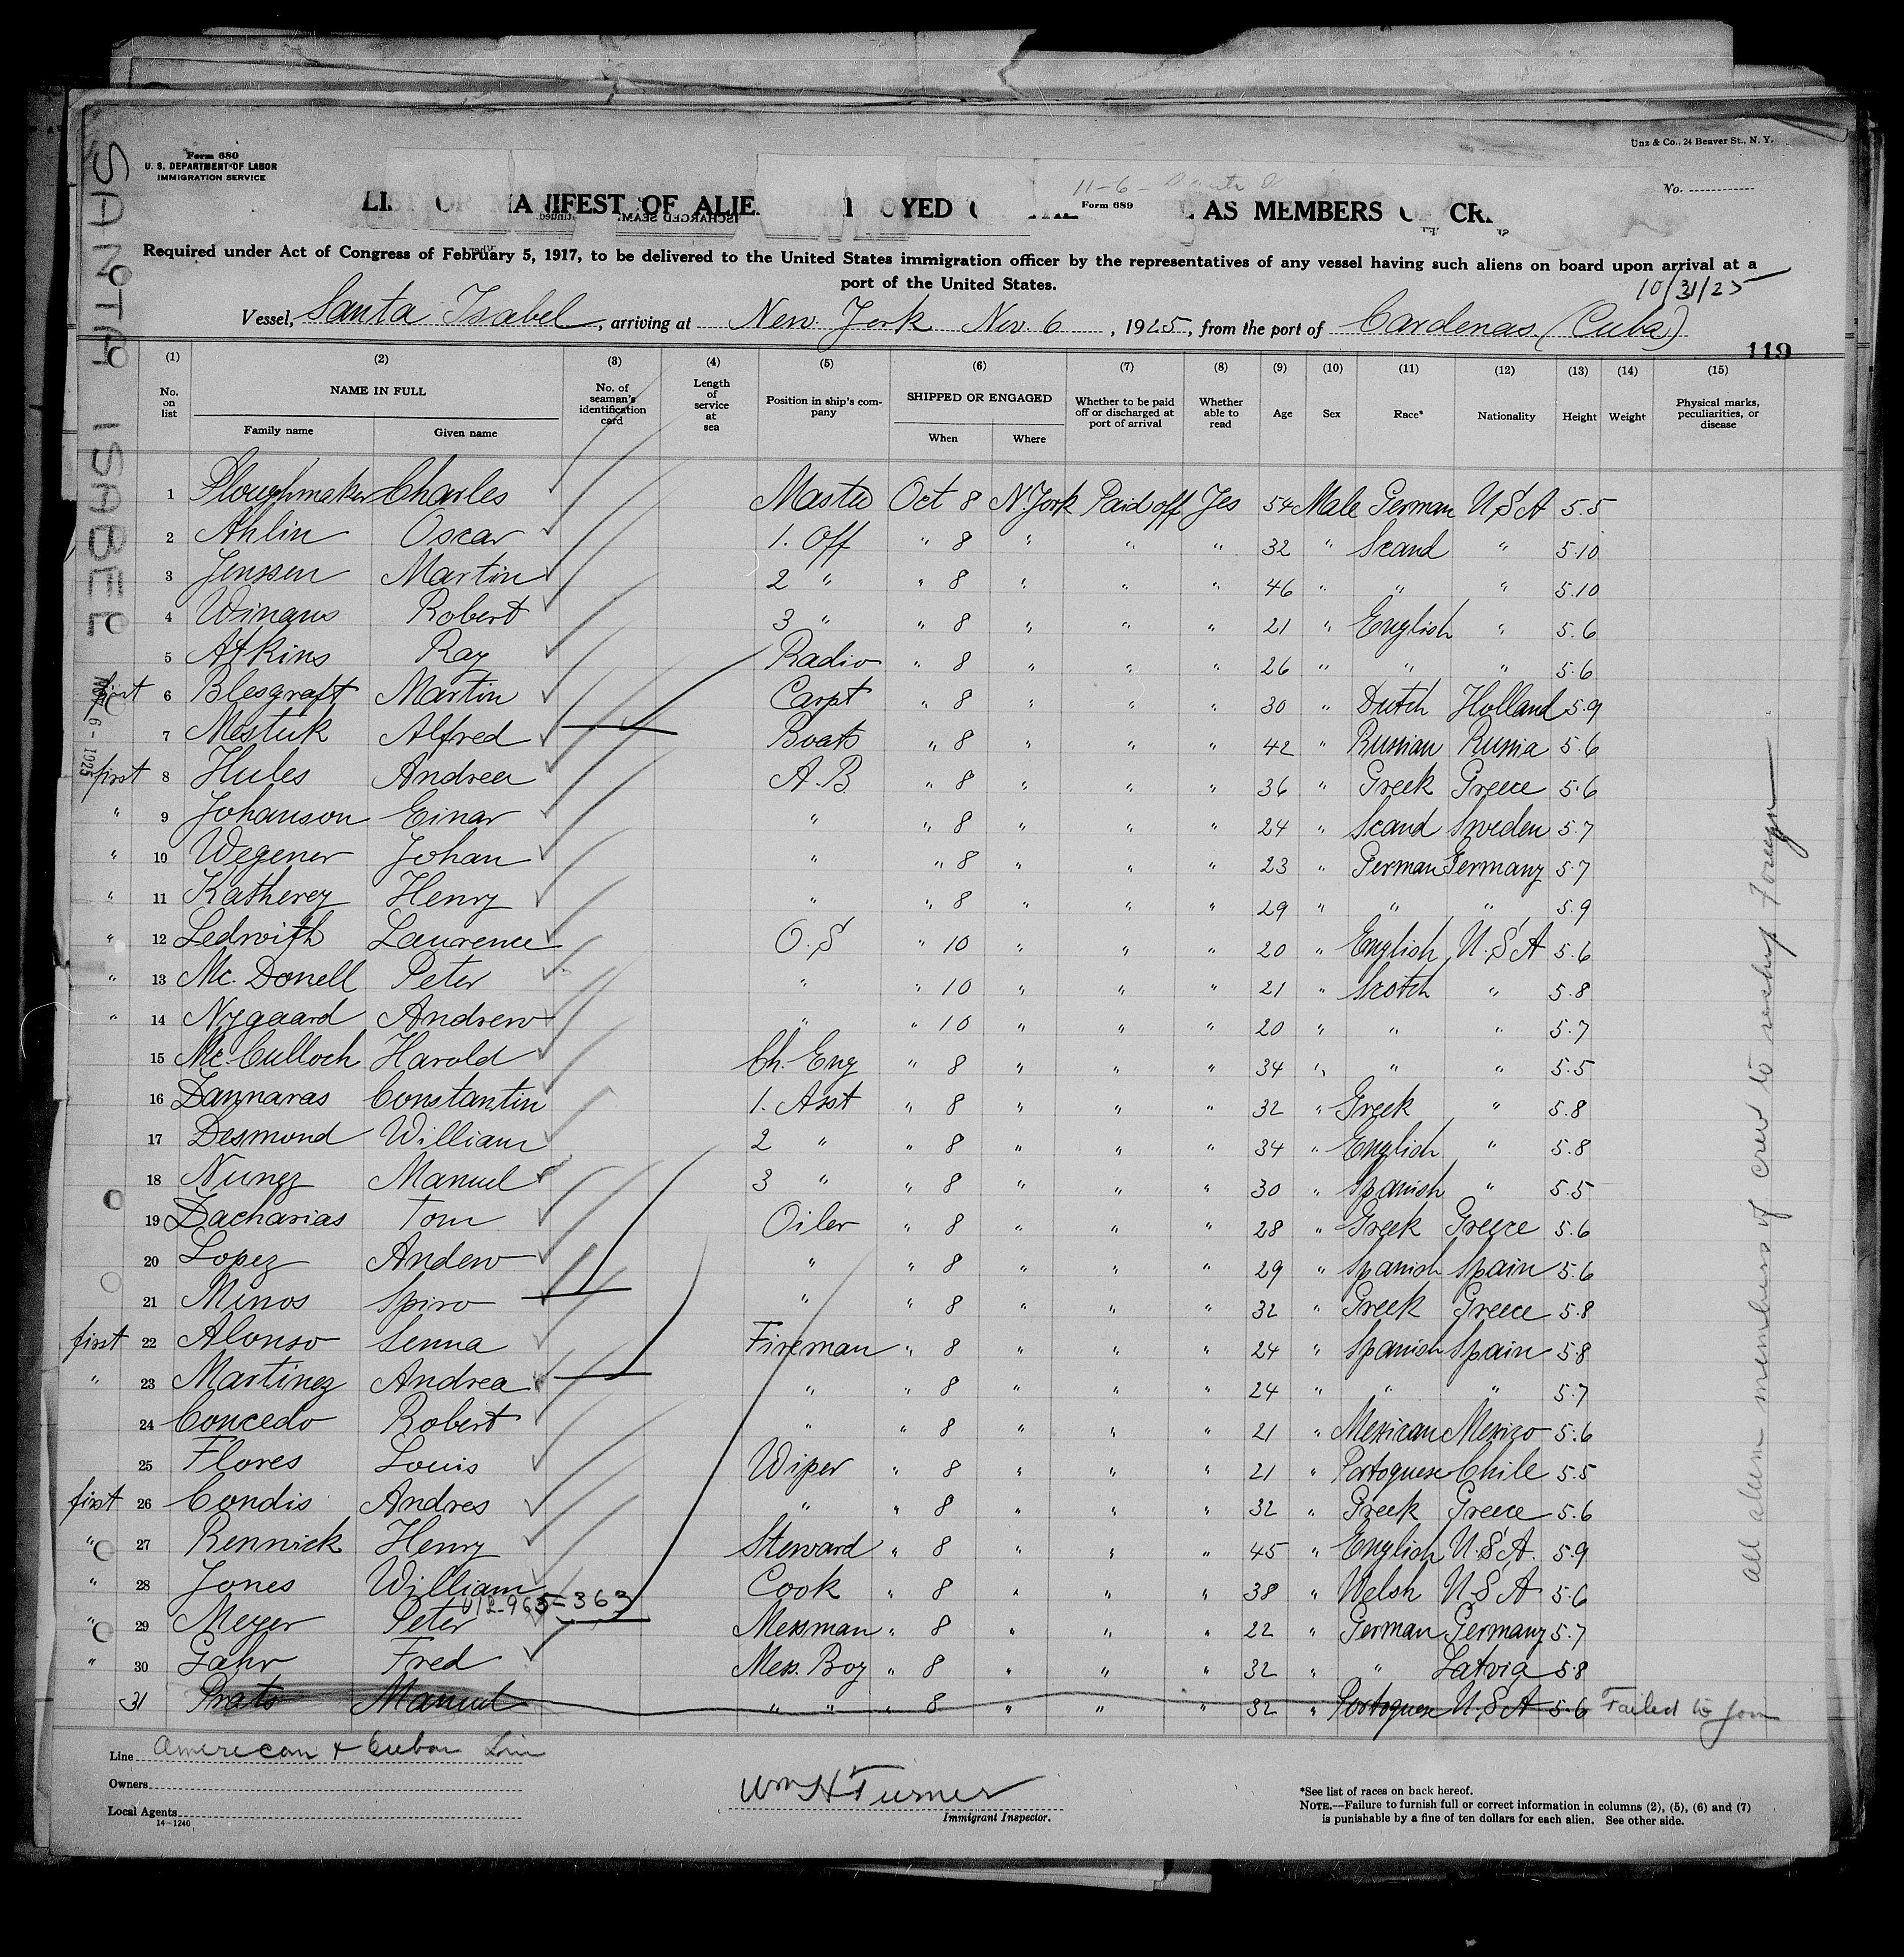 Form 680
U. S. DEPARTMENT OF LABOR
IMMIGRATION SERVICE
Unz & Co., 24 Beaver St., N. Y.
No.
11-6-
Form 689
MANIFEST OF AS MEMBERS
Required under Act of Congress of February 5, 1917, to be delivered to the United States immigration officer by the representatives of any vessel having such aliens on board upon arrival at a
port of the United States.
10/31/25
Vessel, Santa Isabel, arriving at New York Nov. 6, 1925, from the port of Cardenas (Cuba)
119
SANTA ISABEL
NOV 6 - 1925
(1) (2) (3) (4) (5) (6) (7) (8) (9) (10) (11) (12) (13) (14) (15)
No. on list NAME IN FULL Family name Given name No. of seaman's identification card Length of service at sea Position in ship's company SHIPPED OR ENGAGED When Where Whether to be paid off or discharged at port of arrival Whether able to read Age Sex Race* Nationality Height Weight Physical marks, peculiarities, or disease
1 Ploughmaker Charles Master Oct 8 N. York Paid off Yes 54 Male German U.S.A 5.5
2 Ahlin Oscar 1. Off " 8 " " " 32 " Scand " 5.10
3 Jenssen Martin 2 " " 8 " " " 46 " " " 5.10
4 Winans Robert 3 " " 8 " " " 21 " English " 5.6
5 Atkins Ray Radio " 8 " " " 26 " " " 5.6
first 6 Blesgraft Martin Carpt " 8 " " " 30 " Dutch Holland 5.9
7 Mestuk Alfred Boats " 8 " " " 42 " Russian Russia 5.6
first 8 Hules Andrea A.B. " 8 " " " 36 " Greek Greece 5.6
" 9 Johanson Einar " " 8 " " " 24 " Scand Sweden 5.7
" 10 Wegener Johan " " 8 " " " 23 " German Germany 5.7
" 11 Katherey Henry " " 8 " " " 29 " " " 5.9
" 12 Ledwith Laurence O.S " 10 " " " 20 " English U.S.A 5.6
" 13 Mc. Donell Peter " " 10 " " " 21 " Scotch " 5.8
" 14 Nygaard Andrew " " 10 " " " 20 " " " 5.7
15 Mc. Culloch Harold Ch. Eng " 8 " " " 34 " " " 5.5
16 Zannaras Constantin 1. Asst " 8 " " " 32 " Greek " 5.8
17 Desmond William 2 " " 8 " " " 34 " English " 5.8
18 Nunez Manuel 3 " " 8 " " " 30 " Spanish " 5.5
19 Zacharias Tom Oiler " 8 " " " 28 " Greek Greece 5.6
20 Lopez Andew " " 8 " " " 29 " Spanish Spain 5.6
21 Minos Spiro " " 8 " " " 32 " Greek Greece 5.8
first 22 Alonso Senna Fireman " 8 " " " 24 " Spanish Spain 5.8
" 23 Martinez Andrea " " 8 " " " 24 " " " 5.7
24 Concedo Robert " " 8 " " " 21 " Mexican Mexico 5.6
25 Flores Louis Wiper " 8 " " " 21 " Portoguese Chile 5.5
first 26 Condis Andres " " 8 " " " 32 " Greek Greece 5.6
" 27 Rennick Henry Steward " 8 " " " 45 " English U.S.A. 5.9
" 28 Jones William Cook " 8 " " " 38 " Welsh U.S.A 5.6
" 29 Meyer Peter Messman " 8 " " " 22 " German Germany 5.7
" 30 Gahr Fred Mess. Boy " 8 " " " 32 " " Latvia 5.8
31 Prats Manuel " " " 8 " " " 32 " Portoguese U.S.A 5.6 Failed to join
All alien members of crew to reship foreign
Line American & Cuban Lin
Owners
Local Agents
14-1240
Wm H Turner
Immigrant Inspector.
*See list of races on back hereof.
NOTE.—Failure to furnish full or correct information in columns (2), (5), (6) and (7)
is punishable by a fine of ten dollars for each alien. See other side.